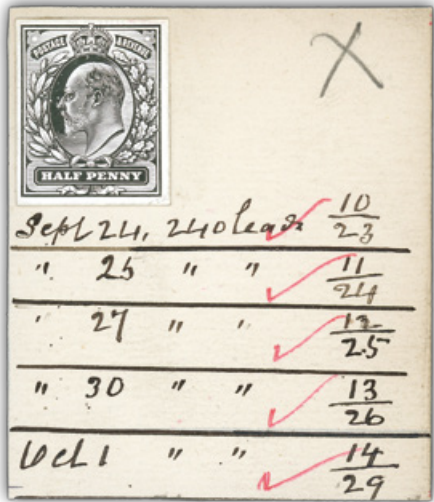 POSTAGE & REVENUE
HALF PENNY
X
Sept 24, 240 leads 10/23
" 25 " " 11/24
" 27 " " 12/25
" 30 " " 13/26
Oct 1 " " 14/29